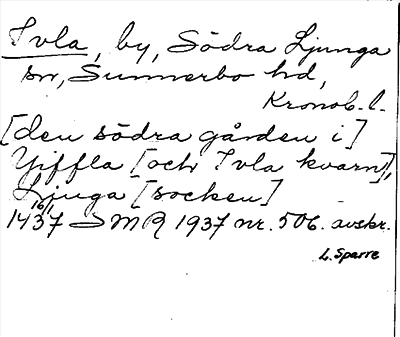 Tvla, by, Södra Ljunga
sn, Sunnerbo hd,
Kronob. l.
[den södra gården i]
Yiffla [och Tvla kvarn],
Ljuga [socken]
14 16/1 37 SMR 1937 nr. 506. avskr.
L. Sparre